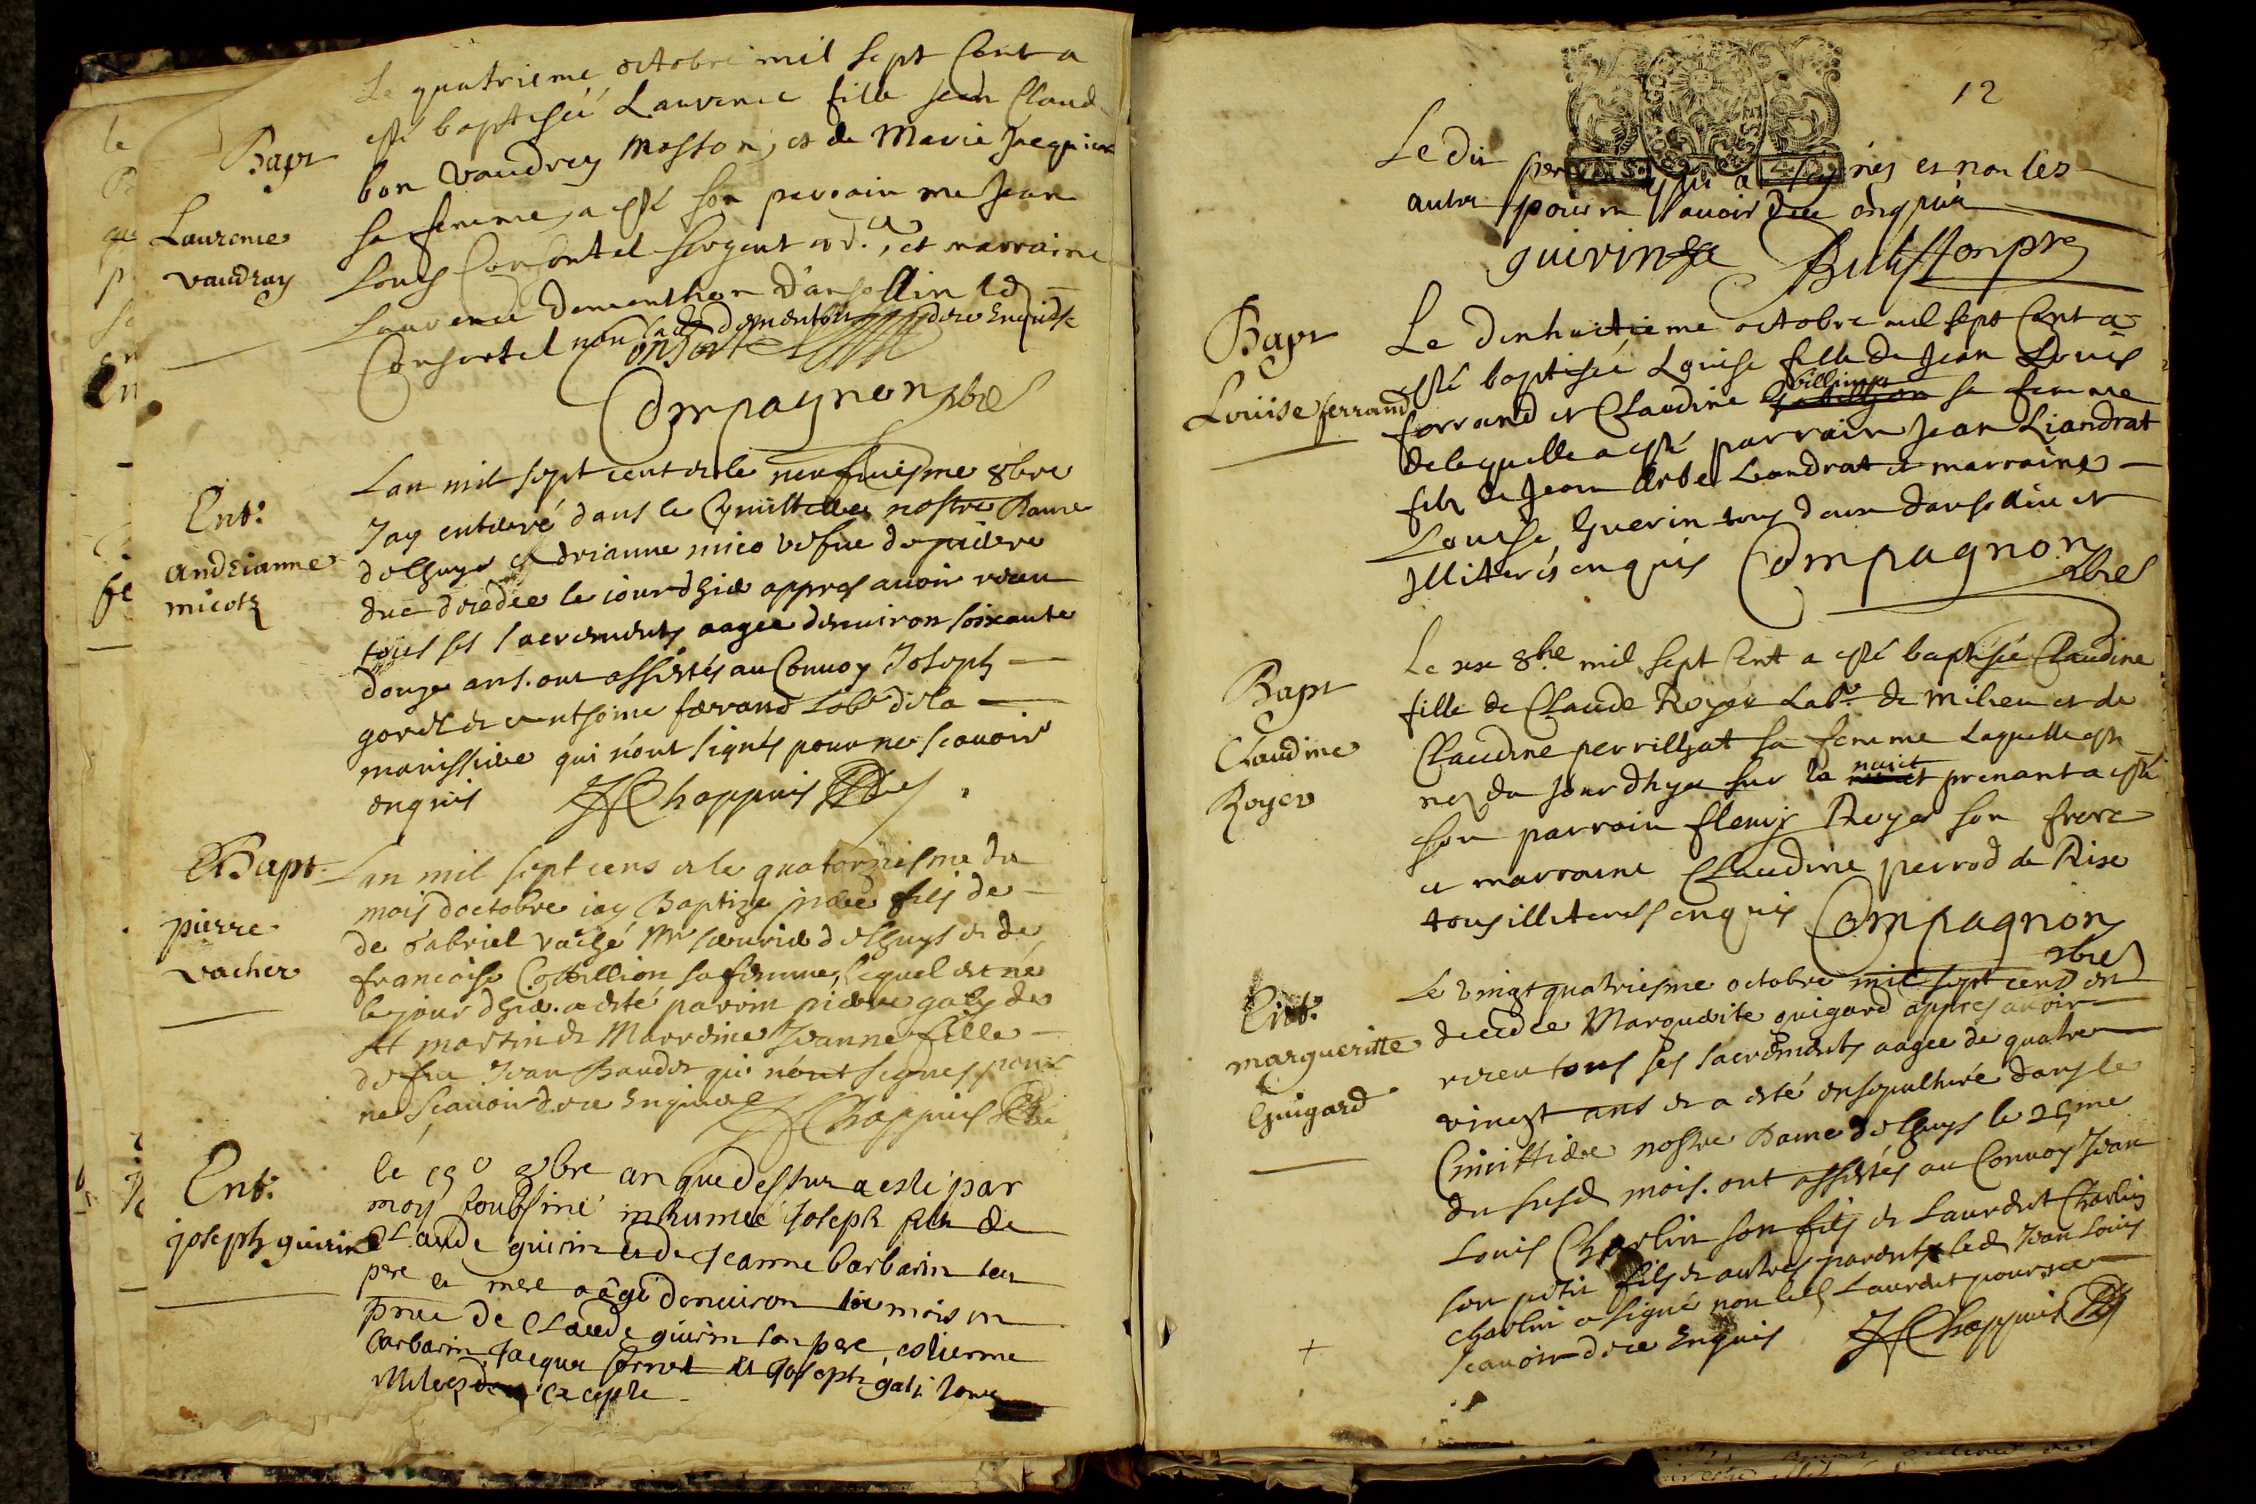 Le quatrieme octobre mil sept Cent a
esté baptisée Laurence fille Jean Claud
Bapt
bon vaudrey masson, et de Marie Jacquier
Laurence
vaudray
sa femme, a esté son parrain me Jean
Louys Consortel sergent et marraine
Laurence dementhon d'ansolin
Consortel non lad dementon de ce Enquise
Compagnon pbre
Ent:
andrianne
micotz
Lan mil sept cent et le neufviesme 8bre
Jay enterré dans le Cymittiere nostre Dame
delhuys Adrianne mico vefue de pierre
duc decedee le iourdhui appres auoir receu
tous ses sacrements aagee denuiron soixante
douze ans. ont assistés au Convoy Joseph
goret et anthoine ferrand Lab de la
parroissiee qui n'ont signés pour ne scauoir
enquis JChappuis Pbre
Bapt
pierre
vacher
Lan mil sept cens et le quatorziesme du
mois doctobre iay Baptize pierre fils de
de Gabriel vaché Mre delhuys et de
francoise Cottillion sa femme, lequel est né
le jour dhui. a esté parrin pierre galy de
St martin et Marrine Jeanne fille
de feu Jean Baudet qui n'ont signes pour
ne scauoir de ce Enquis JChappuis Pbre
Ent:
joseph guirin
le 15e 8bre an que dessur a esté par
moy soubsiné inhumeé joseph fils de
Claude guirin et de Jeanne barbarin ses
pere et mere aâgé denuiron six mois en
pnce de Claude guirin son pere, estienne
barbarin, Jacque Cornet et Joseph gali tous
excepte
12
Le dit per signés et non les
autre pour ne scauoir de ce enquis
guirin Buisson pre
Bapt
Louise ferrand
Le dixhuitieme octobre mil sept Cent a
esté baptisée Louise fille de Jean Louis
ferrand et Claudine villi sa femme
delequelle a esté parrain Jean Liandrat
fils de Jean Liandrat et marraine
Louise Guerin tous deux dansolin et
Illiterés enquis Compagnon
pbre
Bapt
Claudine
Royer
Le xx 8bre mil sept Cent a esté baptisée Claudine
fille de Claude Royer Labr de milieu et de
Claudine perrilliat sa femme laquelle est
née du jourdhyer sur la nuict prenant a esté
son parrain fleury Royer son frere
et marraine Claudine perrod de Rix
tous illiteres enquis Compagnon
pbre
Ent:
margueritte
Guigard
Le vingt quatriesme octobre mil sept cens est
decedee Marguerite guigard appres auoir
receu tous ses sacrements aagee de quatre
vingt ans et a esté ensepulturé dans le
Cimittiere nostre Dame delhuys le 25me
du susd mois. ont assistés au Convoy Jean
Louis Charlin son fils et Laurent Charlin
son petit fils et autres parents led Jean Louis
charlin a signé non led Laurent pour ne
scauoir de ce Enquis JChappuis Pbre